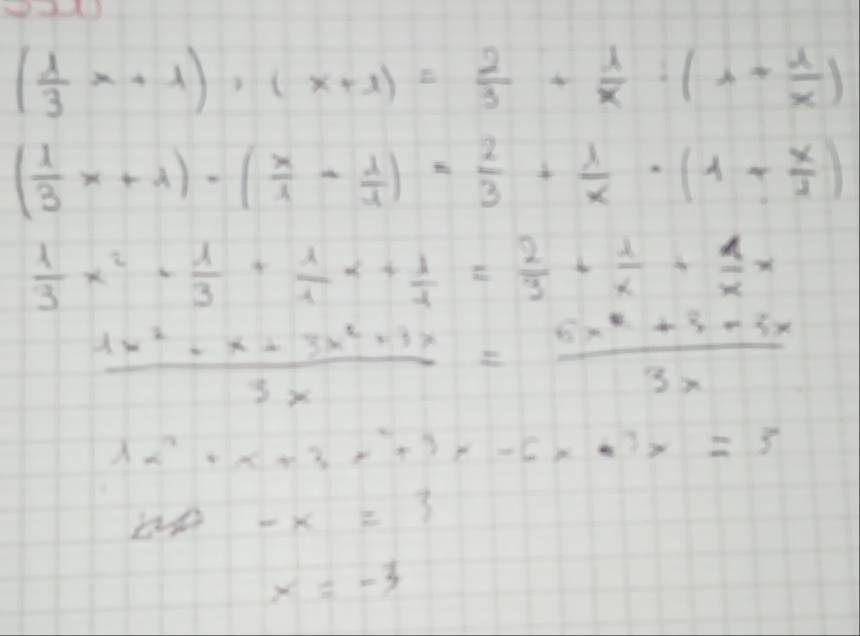 (1/3 x + 1) · (x+1) = 2/3 + 1/x · (1 + 1/x)
(1/3 x + 1) · (x/1 + 1/1) = 2/3 + 1/x · (1 + x/1)
1/3 x² + 1/3 + 1/1 x + 1/1 = 2/3 + 1/x + 1/x x
(1x² + x + 3x² + 3x)/(3x) = (6x + 3 + 3x)/(3x)
1x² + x + 3x² + 3x - 6x
- x = 3
x = -3